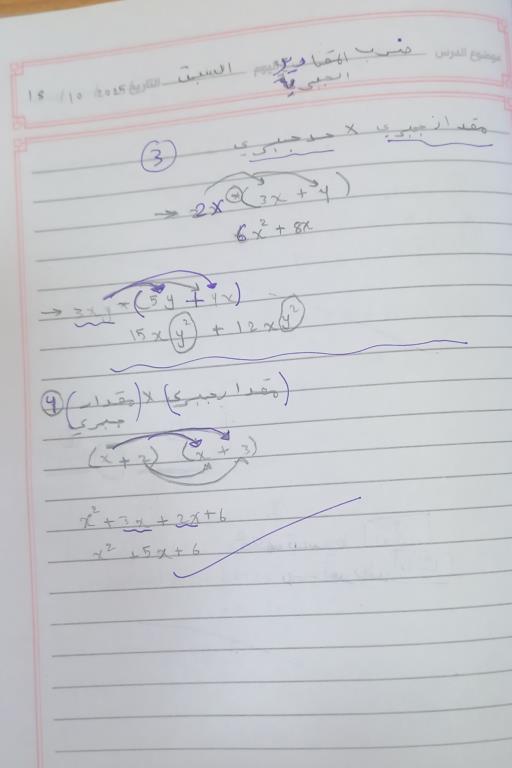 موضوع الدرس ضرب المقادير اليوم السبت التاريخ 2025/10/18
الجبرية
③ مقدار جبري × حد جبري
→ 2x × (3x + 4)
6x² + 8x
→ 3xy × (5y + 4x)
15xy² + 12xy²
④ (مقدار جبري) × (مقدار جبري)
(x + 2) (x + 3)
x² + 3x + 2x + 6
x² + 5x + 6